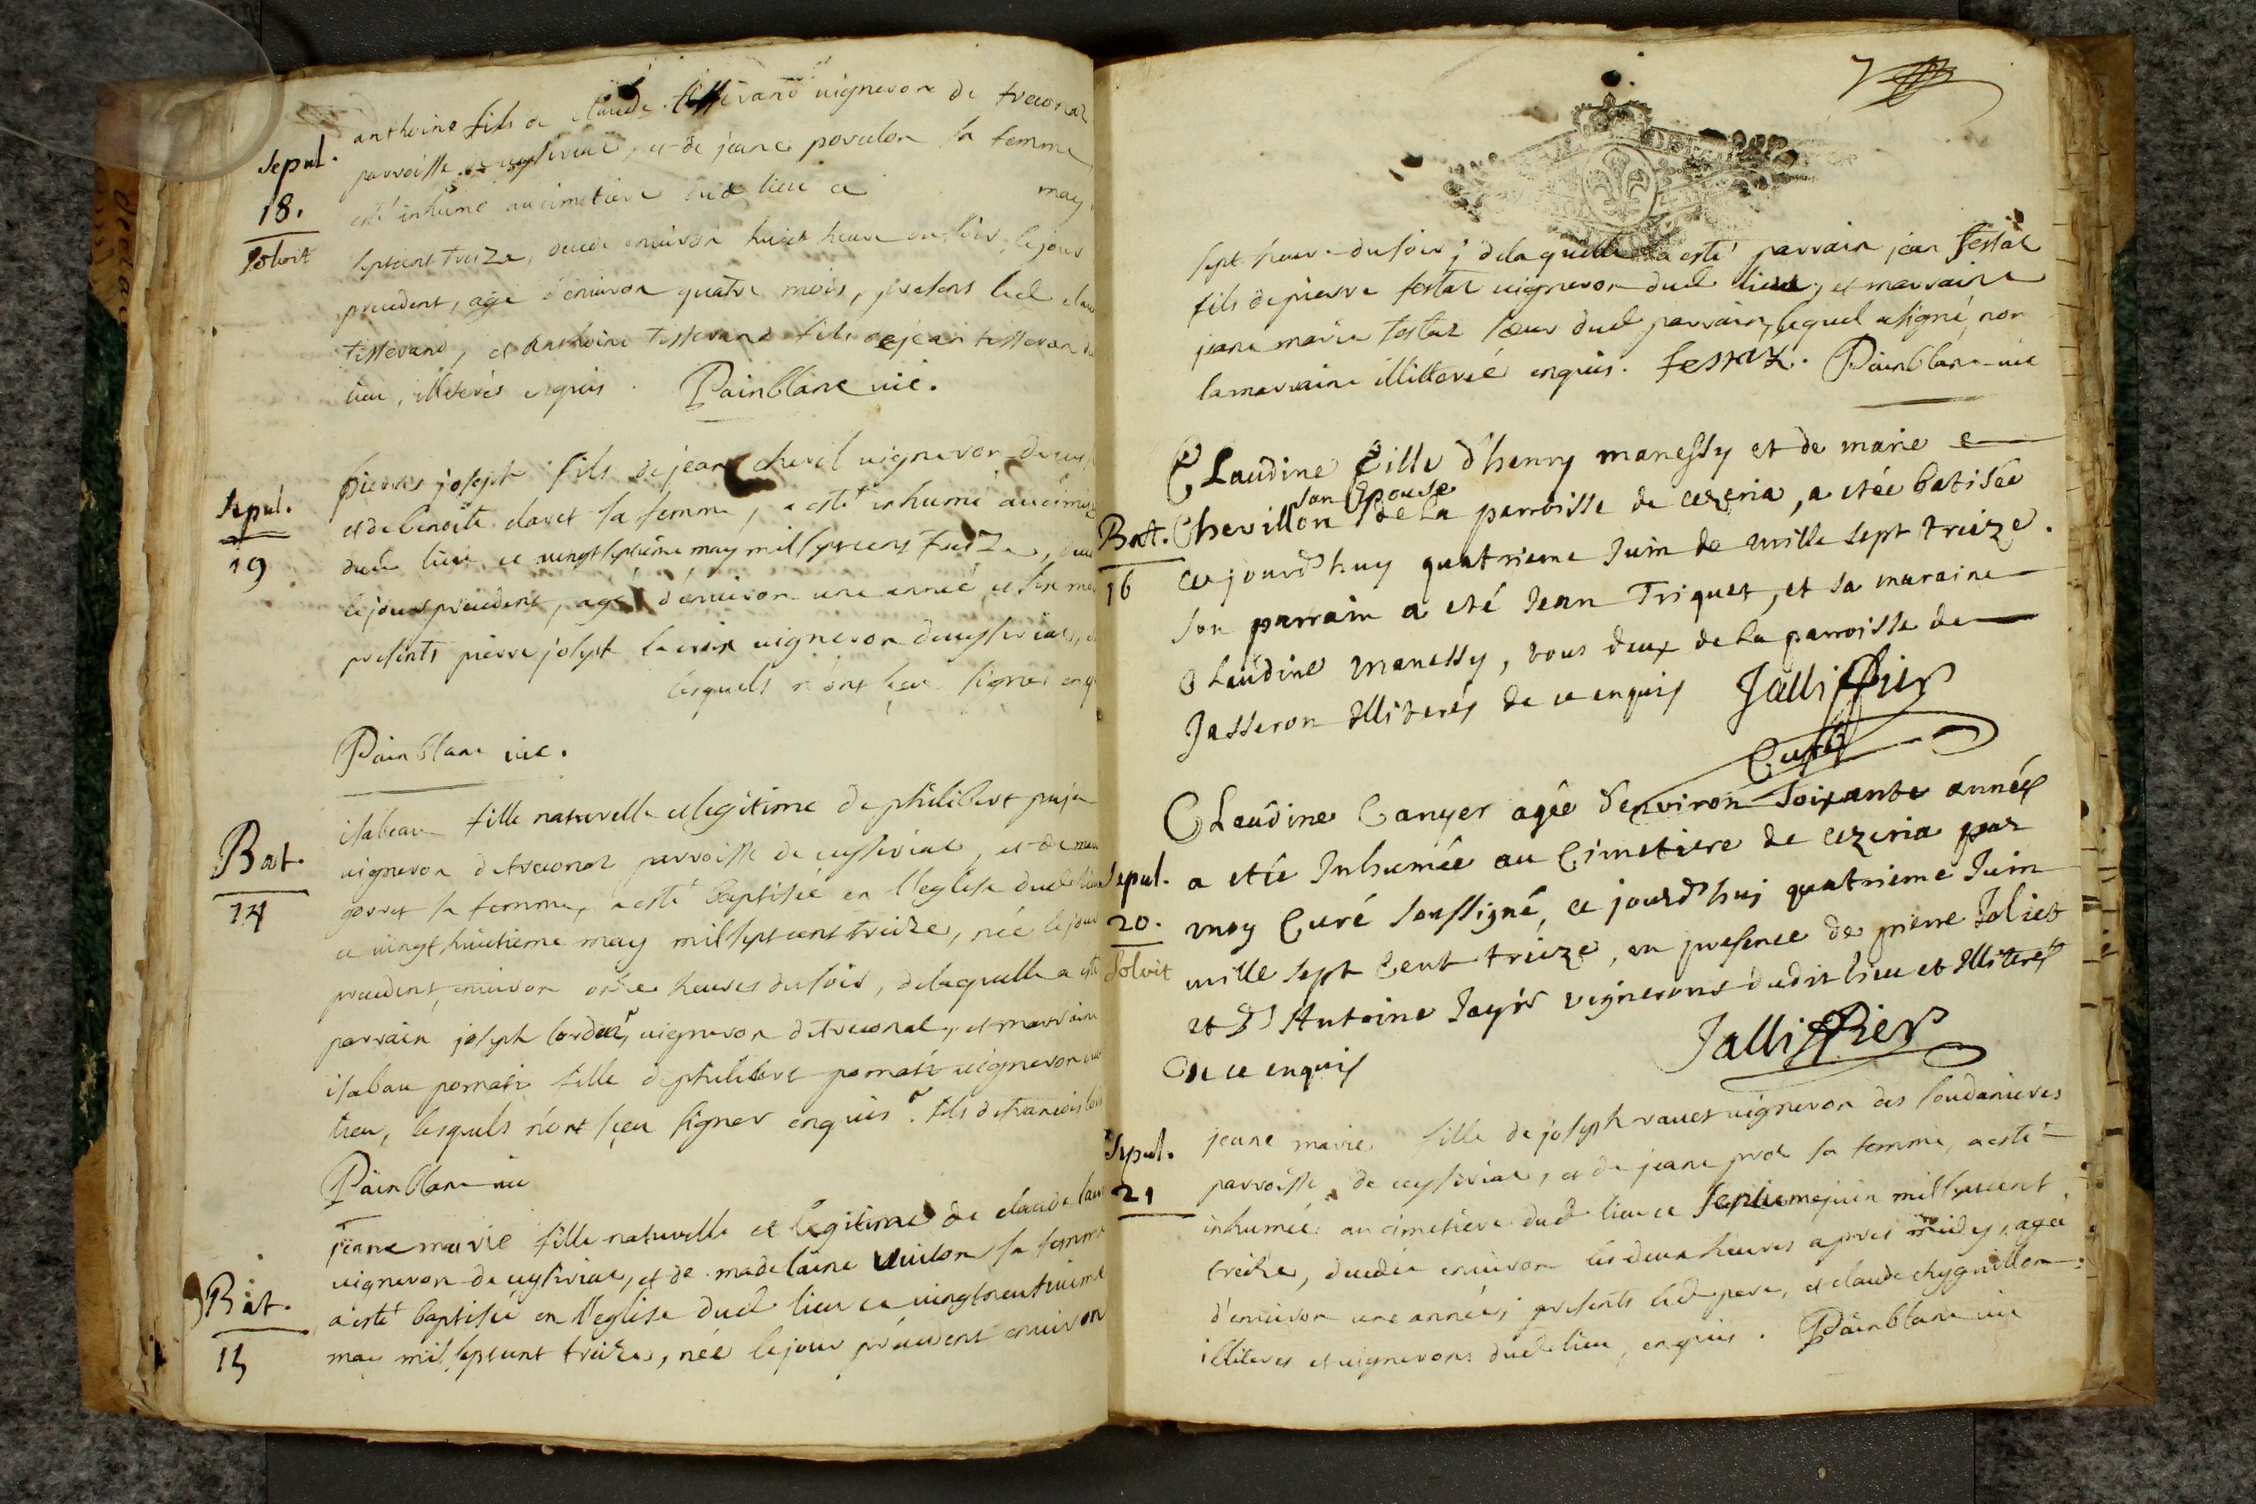 Sepul.
18.
Solvit
anthoine fils de claude tisserand vigneron de treconas
parroisse de ceysiriat, et de jeane la femme
esté inhumé au cimetiere dud lieu ce may
septcent treize, decedé environ huict heure du soir, le jour
precedent, agé d'environ quatre mois, presens led
tisserand, et anthoine tisserand fils de jean tisseran
lieu, illeterés enquis. Painblanc vic.
Sepul.
19
pierre joseph fils de jean vigneron de
et de benoite sa femme, a esté inhumé au
dud lieu ce vingt septieme may mil septcent treize,
le jour precedent, agé d'environ une année et
presents pierre joseph lacroix vigneron de ceysiriat,
lesquels n'ont sçeu signer
Painblanc vic.
Bat.
14
isabeau fille naturelle et legitime de philibert
vigneron de treconas parroisse de ceysiriat, et de
sa femme, a esté baptisée en l'eglise dud
ce vingt huictieme may mil septcent treize, née le jour
precedent, environ onze heures du soir, de laquelle a esté
parrain joseph vigneron de treconas, et marraine
isabau fille de philibert vigneron
lieu, lesquels n'ont sçeu signer enquis. fils de francois
Painblanc vic
Bat.
15
jeane marie fille naturelle et legitime de claude
vigneron de ceysiriat, et de madelaine sa femme
a esté baptisée en l'eglise dud lieu ce vingtneufvieme
may mil septcent treize, née le jour precedent environ
7
sept heure du soir; de laquelle a esté parrain jean festaz
fils de pierre festaz vigneron dud lieu, et marraine
jeane marie festaz soeur dud parrain, lequel a signé non
la marraine illitterée enquis. festaz. Painblanc vic
Bat.
16
Claudine fille d'henry manessy et de marie
Chevillon son Epouse de la parroisse de cezeria, a etée batisée
ce jourd'huy quatrieme Juin de mille sept treize.
son parrain a eté Jean Triquet, et sa maraine
Claudine manessy, tous deux de la parroisse de
Jasseron illiterés de ce enquis Jalliffier
Curé
Sepul.
20.
Solvit
Claudine Canyer agée d'environ soixante années
a etée Inhumée au Cimetiere de cezeria par
moy Curé soussigné, ce jourd'huy quatrieme Juin
mille sept Cent treize, en presence de pierre Joliet
et d'Antoine Jayr vignerons dudit lieu et illiterés
De ce enquis Jalliffier
Sepul.
21
jeane marie fille de joseph ravet vigneron des soudanieres
parroisse de ceysiriat, et de jeane sa femme, a esté
inhumée au cimetiere dud lieu ce septieme juin mil septcent
treize, decedée environ les deux heures apres midy, agée
d'environ une année, presents led pere, et claude
illiterés et vignerons dud lieu, enquis. Painblanc vic